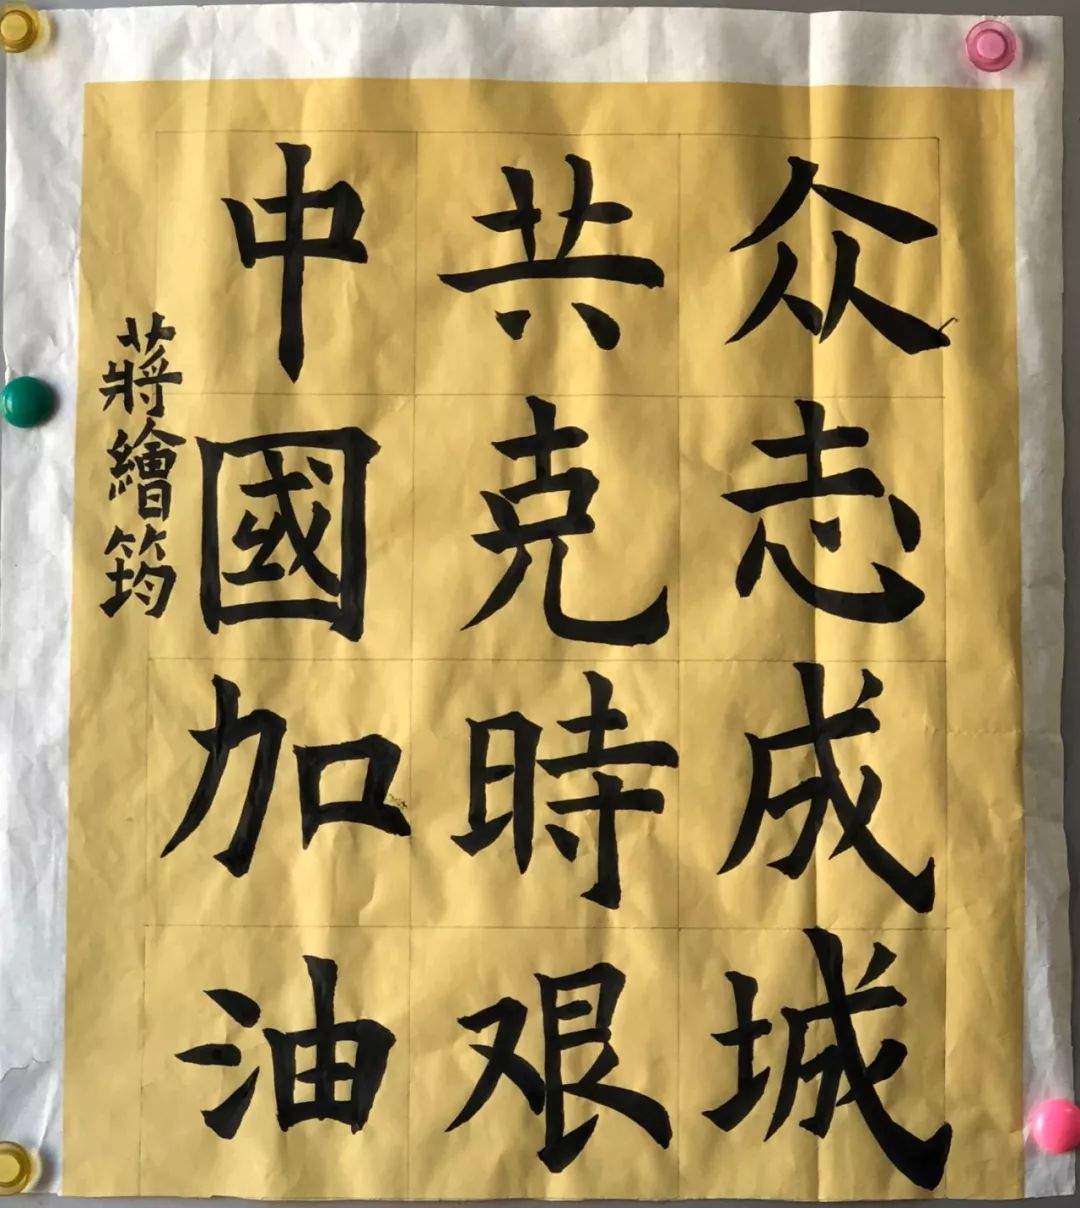 众志成城
共克時艰
中國加油
蔣繪筠